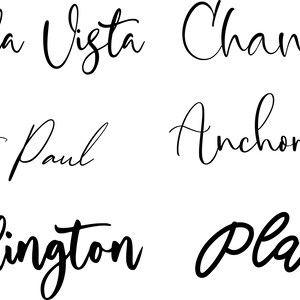 la Vista Chan
Paul Anchor
lington Pla